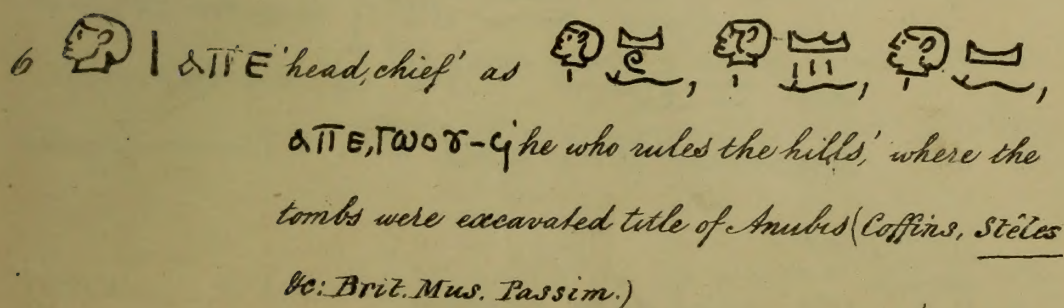 6 𓁶𓏤 ⲁⲡⲉ 'head, chief' as 𓁶𓏤 , 𓁶𓏤 , 𓁶𓏤 ,
ⲁⲡⲉ, ⲧⲱⲟⲩ-ϥ 'he who rules the hills,' where the
tombs were excavated title of Anubis (Coffins, Stêles
&c: Brit. Mus. Passim.)